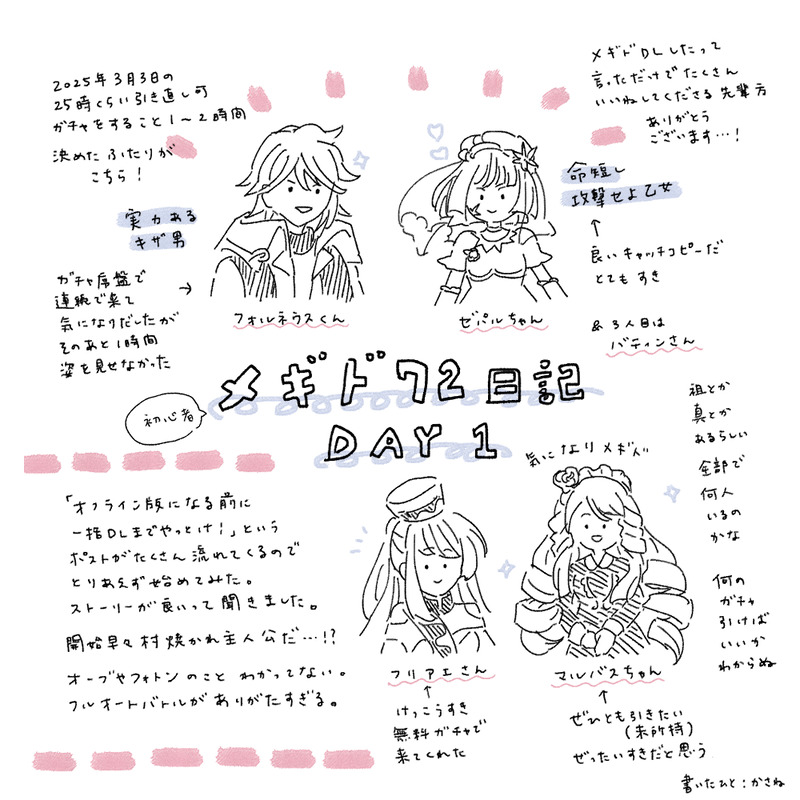 2025年3月3日の
25時くらい引き直し可
ガチャをすること1〜2時間
決めたふたりが
こちら!
実力ある
キザ男
ガチャ序盤で
連続で来て
気になりだしたが
そのあと1時間
姿を見せなかった
→
フォルネウスくん
ゼパルちゃん
メギドDLしたって
言っただけでたくさん
いいねしてくださる先輩方
ありがとう
ございます…!
命短し
攻撃せよ乙女
↑
良いキャッチコピーだ
とてもすき
& 3人目は
バティンさん
初心者
メギド72日記
DAY 1
「オフライン版になる前に
一括DLまでやっとけ!」という
ポストがたくさん流れてくるので
とりあえず始めてみた。
ストーリーが良いって聞きました。
開始早々村焼かれ主人公だ…!?
オーブやフォトンのこと わかってない。
フルオートバトルがありがたすぎる。
気になりメギド
フリアエさん
↑
けっこうすき
無料ガチャで
来てくれた
マルバスちゃん
↑
ぜひとも引きたい
(未所持)
ぜったいすきだと思う
祖とか
真とか
あるらしい
全部で
何人
いるの
かな
何の
ガチャ
引けば
いいか
わからぬ
書いたひと:かさね